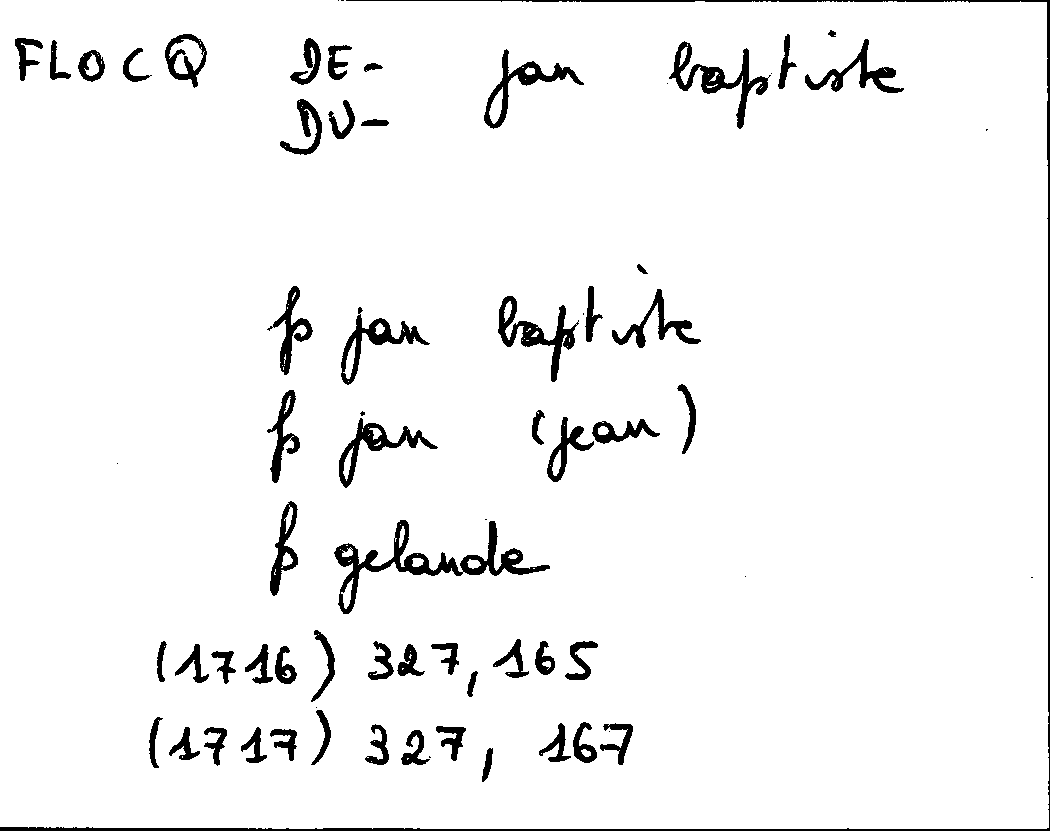 FLOCQ DE- jan baptiste
DU-
fs jan baptiste
fs jan (jean)
fs gelande
(1716) 327, 165
(1717) 327, 167